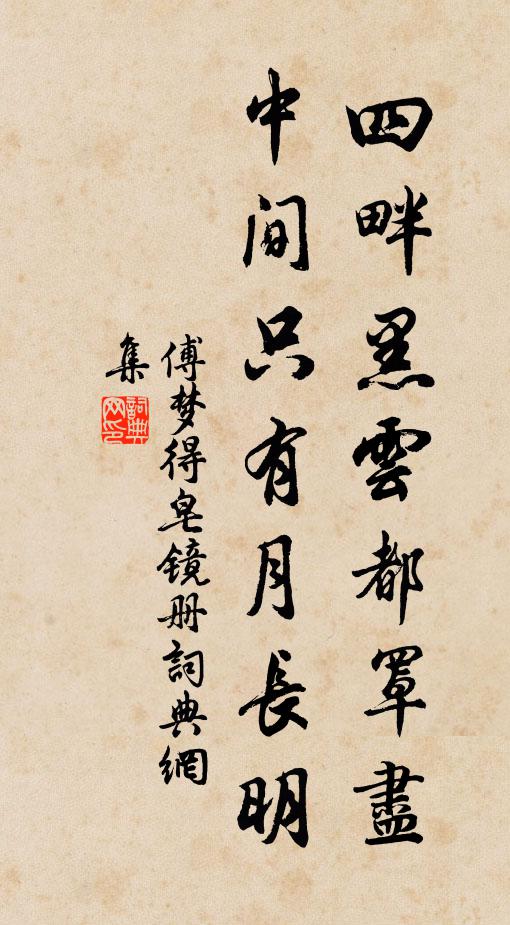 四畔黑雲都罩盡
中间只有月長明
傅梦得皂镜册詞典網
集
詞典网印